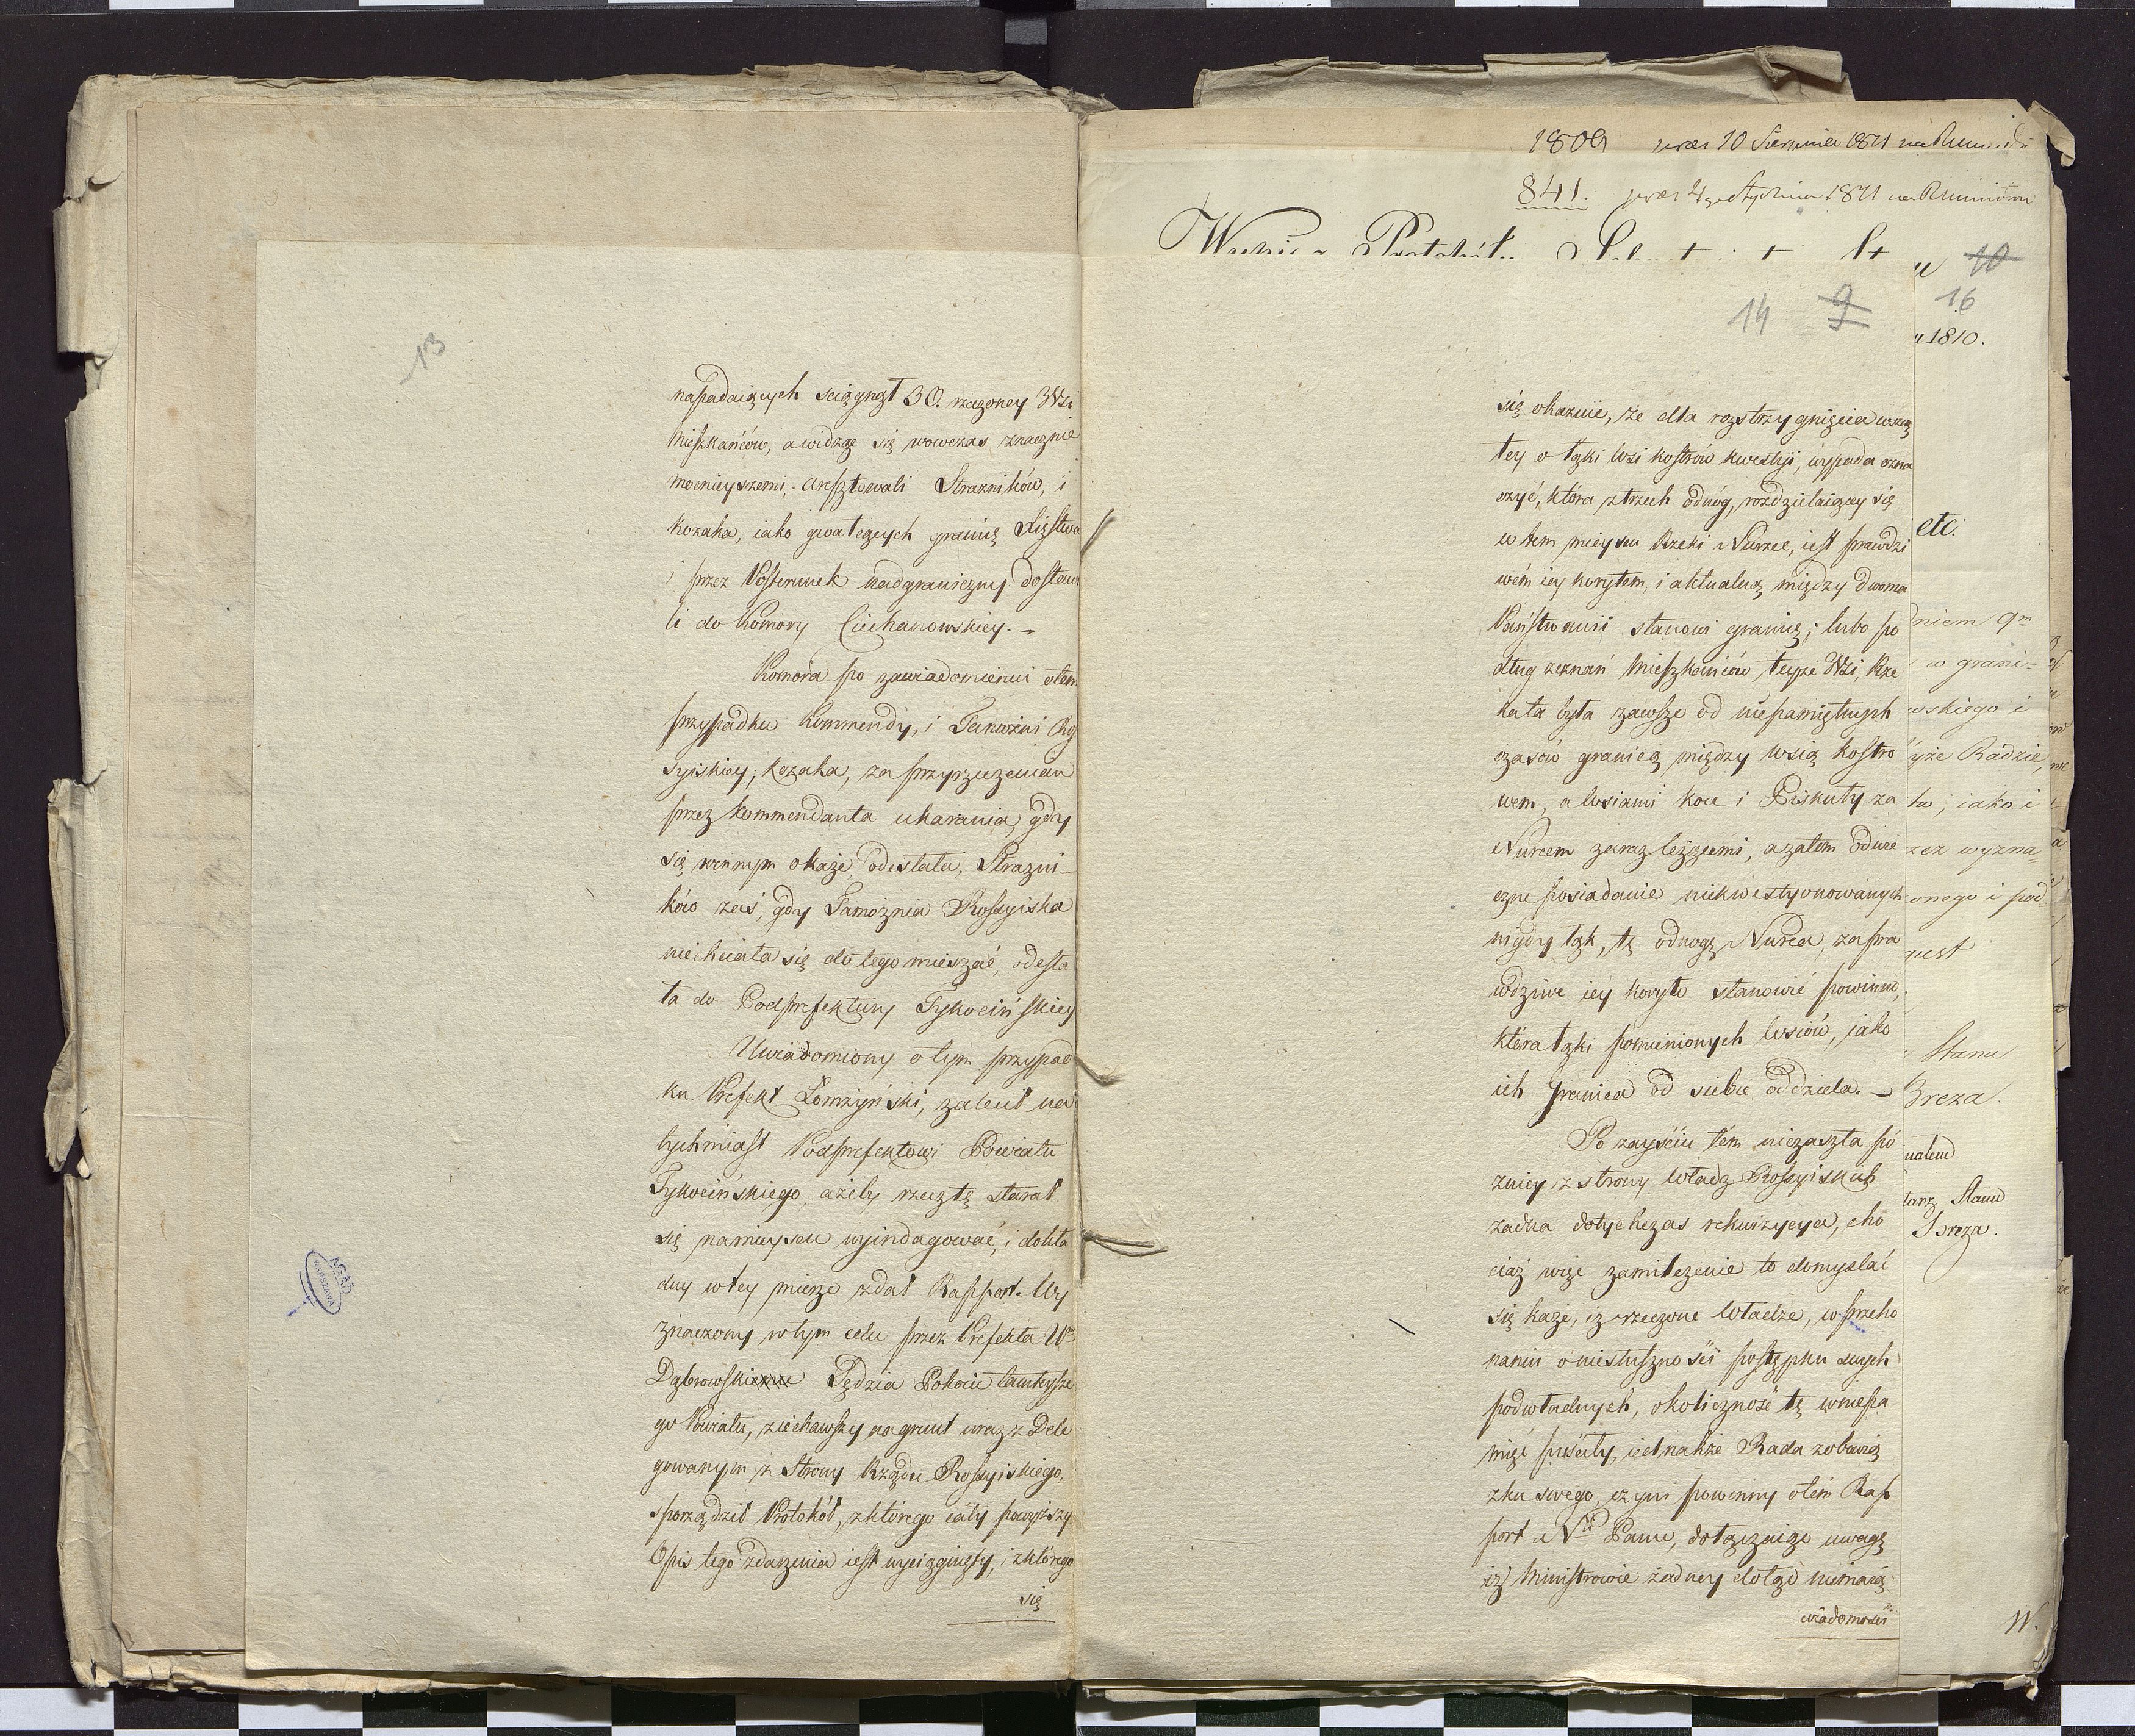 13
napadaiących sciągnął 30. rzeczoney Wsi
Mieszkańców, a widząc się wowczas znacznie
mocnieyszemi, aresztowali Strazników, i
kozaka, iako gwałcących granicę Xięstwa
i przez Posterunek nadgraniczny dostawi
li do Komory Ciechanowskiey. –
Komora po zawiadomieniu o tem
przypadku Kommendy, i Tamożni Ros
syiskiey; kozaka, za przyrzeczeniem
przez kommendanta ukarania, gdy
się winnym okaże, odesłała, Strazni-
ków zaś, gdy Tamożnia Rossyiska
niechciała się do tego mieszać, odesła
ła do Podprefektury Tykocińskiey
Uwiadomiony o tym przypad
ku Prefekt Łomżyński, zalecił na
tychmiast Podprefektowi Powiatu
Tykocińskiego, ażeby rzecz tę starał
się na mieyscu wyindagować, i dokła
dny w tey mierze zdał Rapport. Wy
znaczony w tym celu przez Prefekta Wny
Dąbrowski Sędzia Pokoiu tamteysze
go Powiatu, ziechawszy na grunt wraz z Dele
gowanym z Strony Rządu Rossyiskiego,
sporządził Protokół, z którego cały powyższy
Opis tego zdarzenia iest wyciągnięty, i z którego
się
1809
841.
14 9
się okazuie, że dla rozstrzygnięcia wszczę
tey o łąki Wsi Kostrów kwestyi, wypada ozna
czyć, która z trzech odnóg, rozdzielaiącey się
w tem mieyscu Rzeki Nurzec, iest prawdzi
wém iey korytem, i aktualną między dwoma
Państwami stanowi granicę; lubo po
dług zeznań Mieszkańców teyże Wsi, Rze
ka ta była zawsze od niepamiętnych
czasów granicą między wsią Kostro
wem, a wsiami Koce i Piskuły za
Nurcem zaraz leżącemi, a zatem odwie
czne posiadanie niekwestyonowanych
nigdy łąk, tę odnogę Nurca, za pra
wdziwe iey koryto stanowić powinno,
która łąki pomienionych wsiów, iako
ich granica od siebie oddziela. –
Po zayściu tém niezaszła pó
zniey z strony Władz Rossyiskich
żadna dotychczas rekwizycya, cho
ciaż więc zamilczenie to domyslać
się każe, iż rzeczone Władze, w przeko
naniu o niesłuszności postępku swych
podwładnych, okoliczność tę w niepa
mięć puściły, iednakże Rada z obowią
zku swego, czyni powinny o tém Rap
port Nu Panu, dołączaiąc uwagę
iż Ministrowie żadney dotąd niemaią
wiadomości
10
16
1810.
etc.
niem 9m
w grani=
wskiego i
yże Radzie,
iako i
zez wyzna=
onego i pod
Stanu
Breza.
Stanu
Breza.
W.